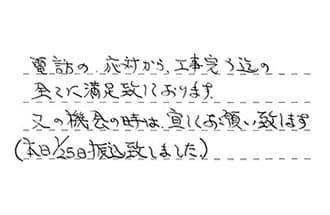 電話の応対から、工事完了迄の
全てに満足致しております
又の機会の時は、宜しくお願い致します
(本日1/25日振込致しました)